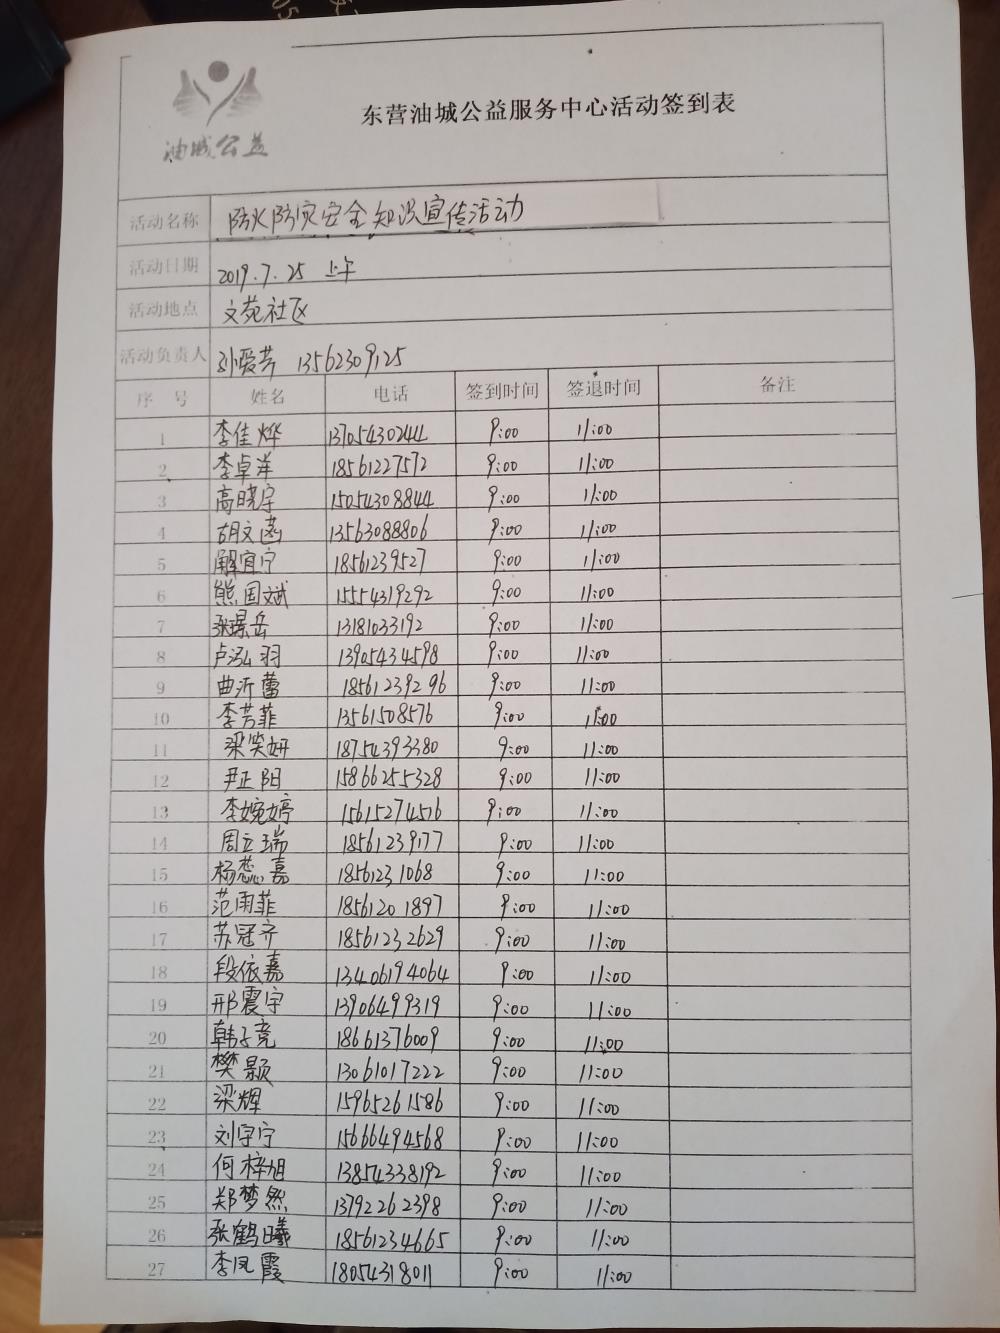 油城公益
东营油城公益服务中心活动签到表
活动名称 防火防灾安全知识宣传活动
活动日期 2019.7.25 上午
活动地点 文苑社区
活动负责人 孙爱芳 13562309125
序 号 姓名 电话 签到时间 签退时间 备注
1 李佳烨 13705430244 9:00 11:00
2 李卓洋 18561227572 9:00 11:00
3 高晓宇 15054308844 9:00 11:00
4 胡文菡 13563088806 9:00 11:00
5 解宜宁 18561239527 9:00 11:00
6 熊国斌 15554319292 9:00 11:00
7 张璟岳 13181033192 9:00 11:00
8 卢泓羽 13905434598 9:00 11:00
9 曲沂蕾 18561239296 9:00 11:00
10 李芳菲 13561508576 9:00 11:00
11 梁笑妍 18754393380 9:00 11:00
12 尹正阳 15866255328 9:00 11:00
13 李婉婷 15615274516 9:00 11:00
14 周立瑞 18561239177 9:00 11:00
15 杨蕊嘉 18561231068 9:00 11:00
16 范雨菲 18561201897 9:00 11:00
17 苏冠齐 18561232629 9:00 11:00
18 段依嘉 13406194064 9:00 11:00
19 邢震宇 13906499319 9:00 11:00
20 韩子竞 18661376009 9:00 11:00
21 樊颢 13061017222 9:00 11:00
22 梁辉 15965261586 9:00 11:00
23 刘宇宁 15666494568 9:00 11:00
24 何梓旭 13854338192 9:00 11:00
25 郑梦然 13792262398 9:00 11:00
26 张鹤曦 18561234665 9:00 11:00
27 李凤霞 18054318011 9:00 11:00